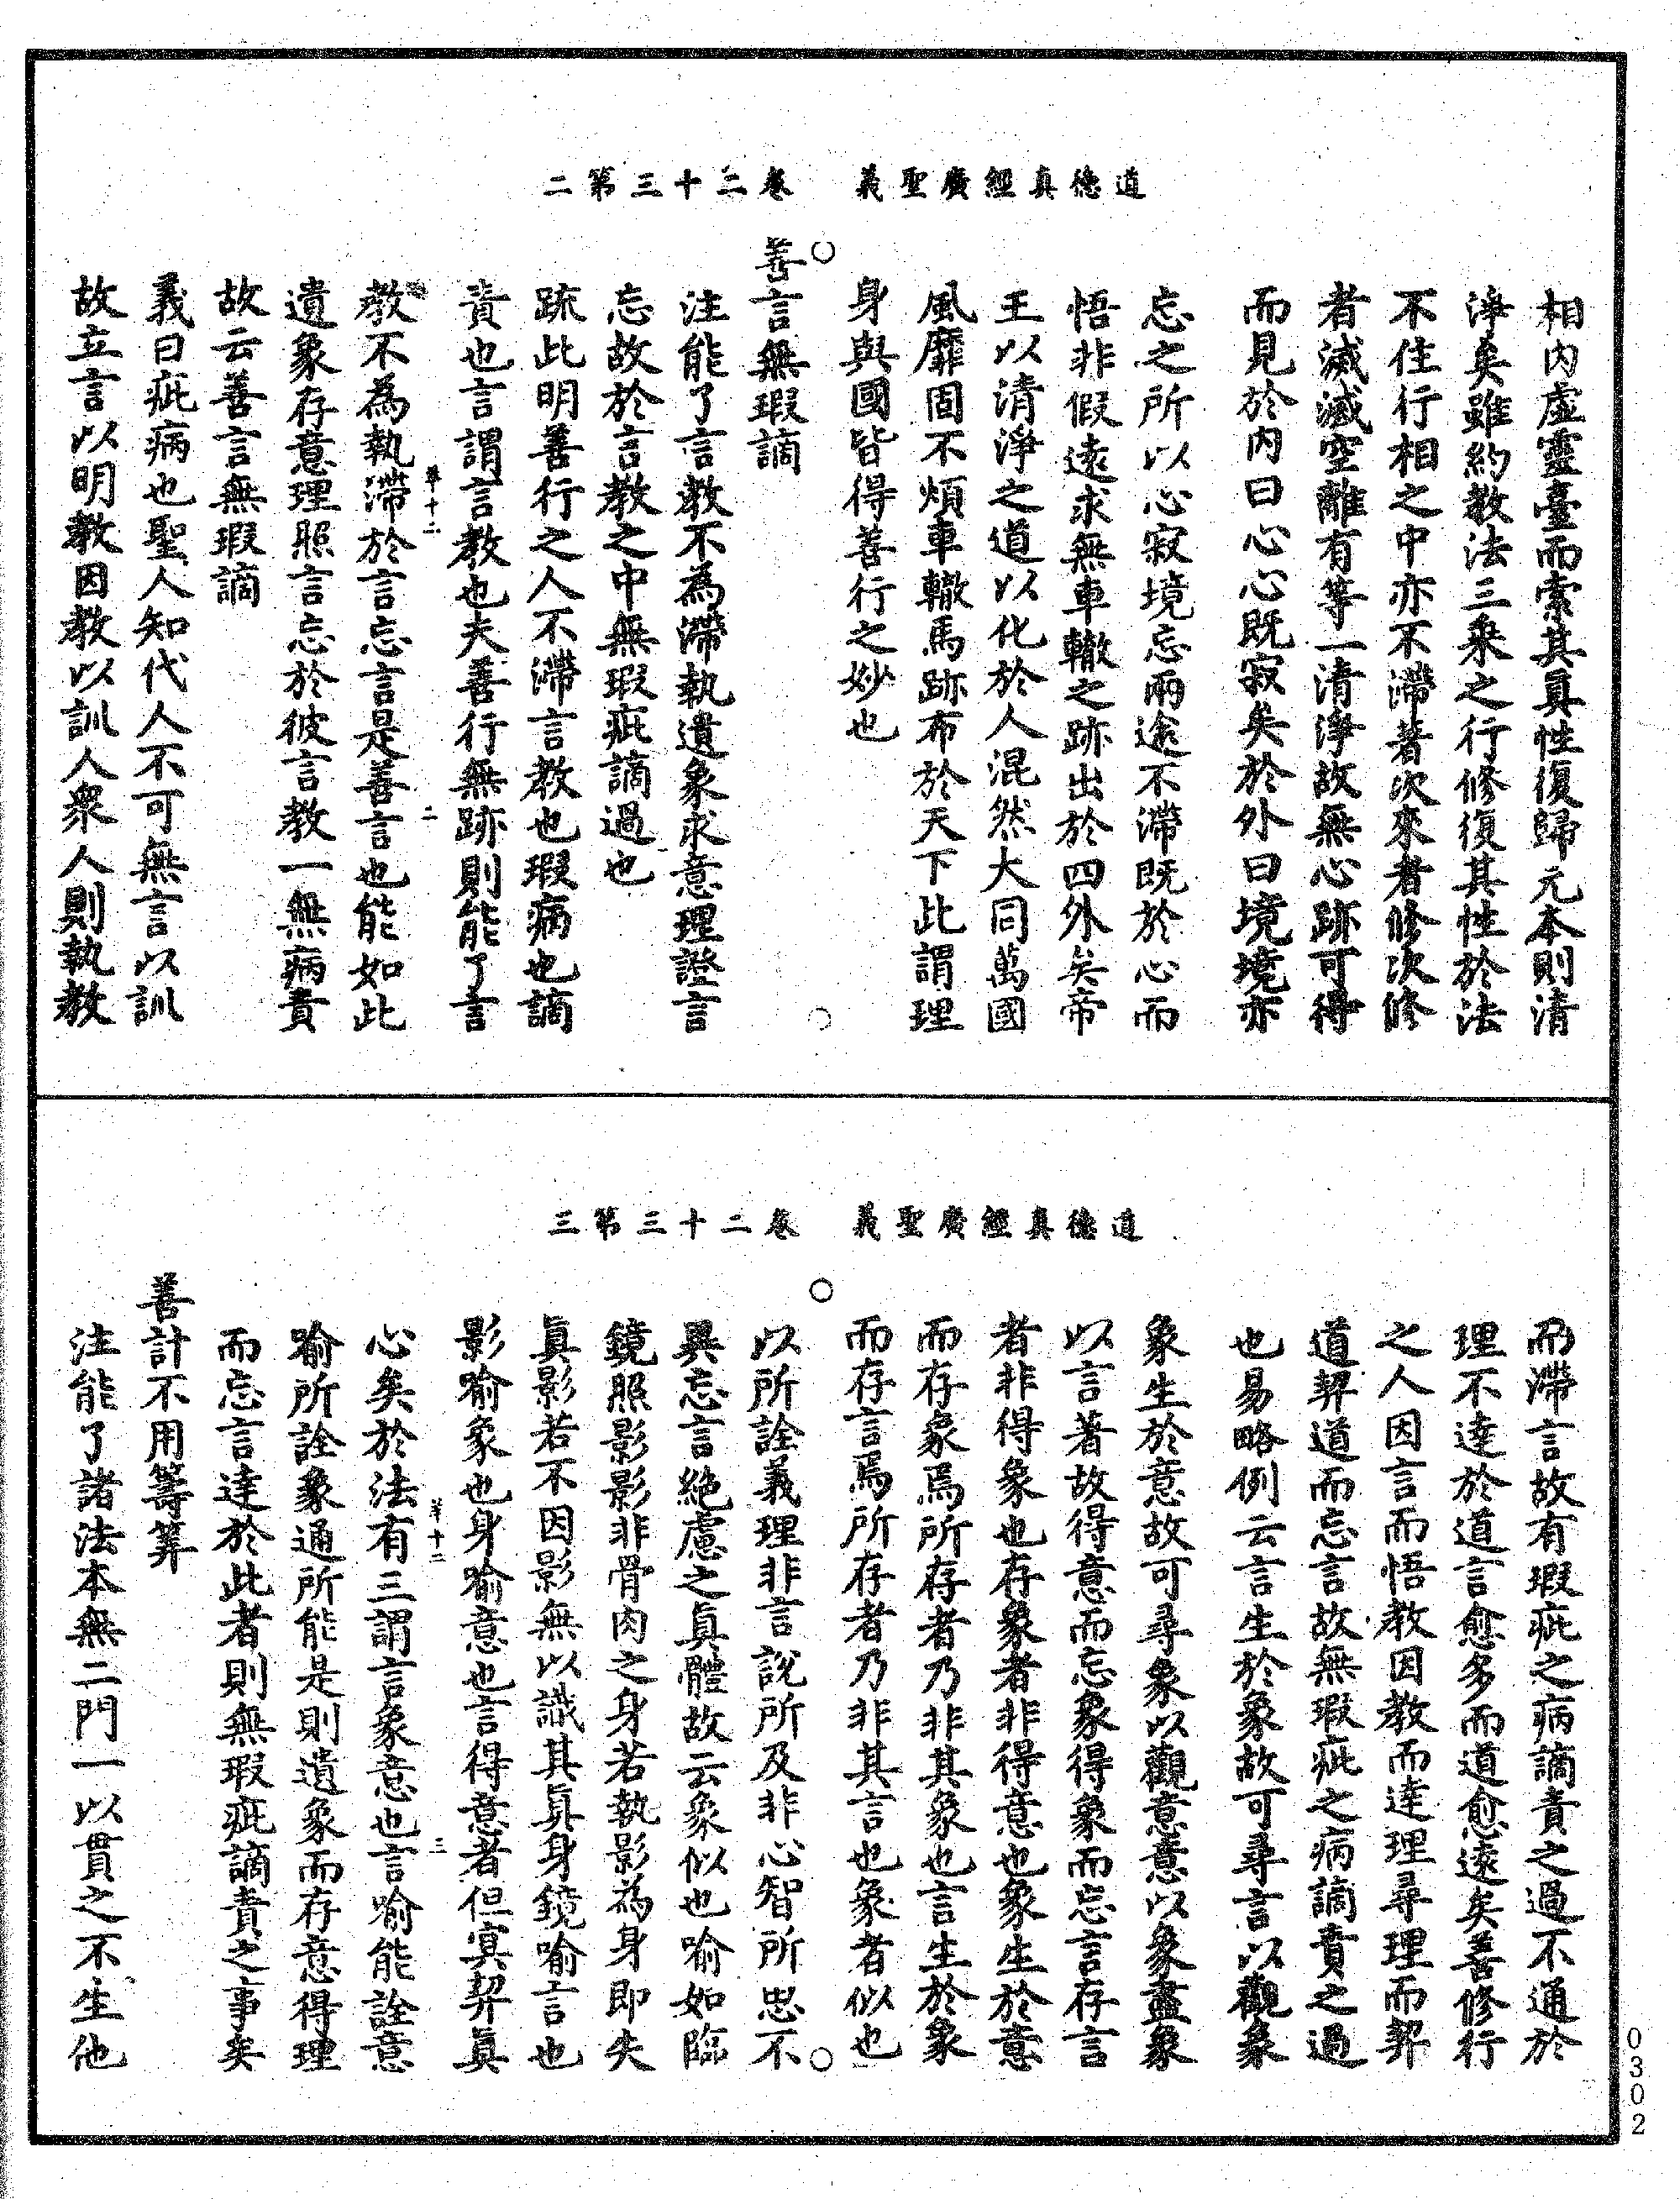 道德真經廣聖義　卷二十三第二
相內虛靈臺而索其真性復歸元本則清
淨矣雖約教法三乘之行修復其性於法
不住行相之中亦不滯著次來者修次修
者滅滅空離有等一清淨故無心跡可得
而見於內曰心心既寂矣於外曰境境亦
忘之所以心寂境忘兩途不滯既於心而
悟非假遠求無車轍之跡出於四外矣帝
王以清淨之道以化於人混然大同萬國
風靡固不煩車轍馬跡布於天下此謂理
身與國皆得善行之妙也
善言無瑕謫
注能了言教不為滯執遺象求意理證言
忘故於言教之中無瑕疵謫過也
疏此明善行之人不滯言教也瑕病也謫
責也言謂言教也夫善行無跡則能了言
羊十二
二
教不為執滯於言忘言是善言也能如此
遺象存意理照言忘於彼言教一無病責
故云善言無瑕謫
義曰疵病也聖人知代人不可無言以訓
故立言以明教因教以訓人眾人則執教
道德真經廣聖義　卷二十三第三
而滯言故有瑕疵之病謫責之過不通於
理不達於道言愈多而道愈遠矣善修行
之人因言而悟教因教而達理尋理而契
道契道而忘言故無瑕疵之病謫責之過
也易略例云言生於象故可尋言以觀象
象生於意故可尋象以觀意意以象盡象
以言著故得意而忘象得象而忘言存言
者非得象也存象者非得意也象生於意
而存象焉所存者乃非其象也言生於象
而存言焉所存者乃非其言也象者似也
以所詮義理非言說所及非心智所思不
異忘言絕慮之真體故云象似也喻如臨
鏡照影影非骨肉之身若執影為身即失
真影若不因影無以識其真身鏡喻言也
影喻象也身喻意也言得意者但冥契真
羊十二
三
心矣於法有三謂言象意也言喻能詮意
喻所詮象通所能是則遺象而存意得理
而忘言達於此者則無瑕疵謫責之事矣
善計不用籌筭
注能了諸法本無二門一以貫之不生他
0302